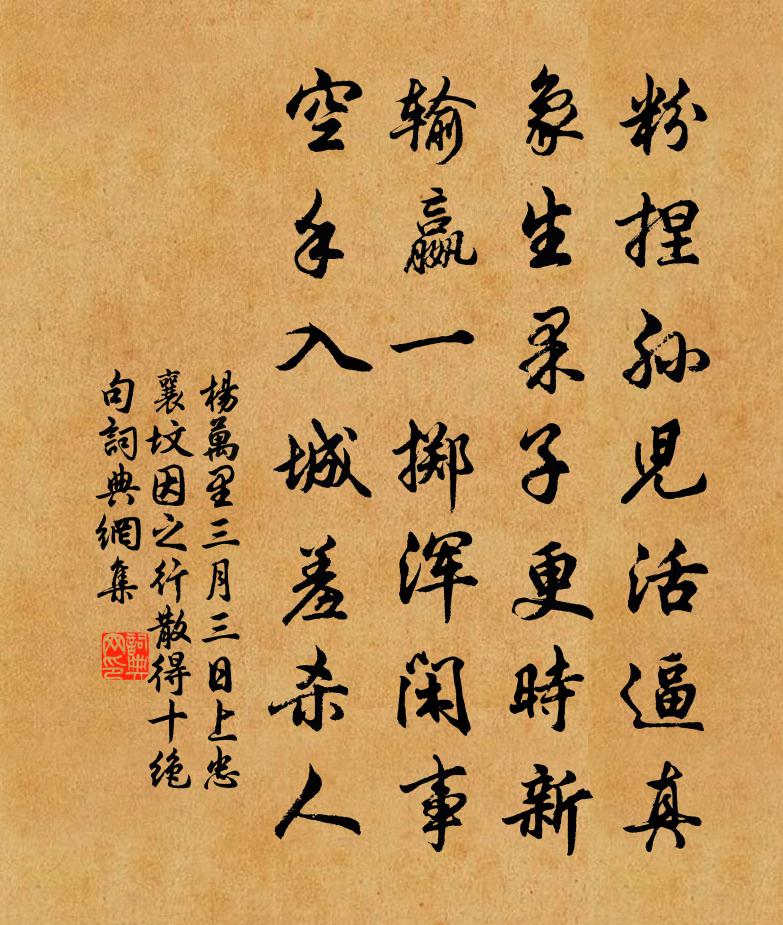 粉捏孙兒活逼真
象生果子更時新
输嬴一掷浑闲事
空手入城羞杀人
楊萬里三月三日上忠
襄坟因之行散得十绝
句詞典網集
詞典
网印